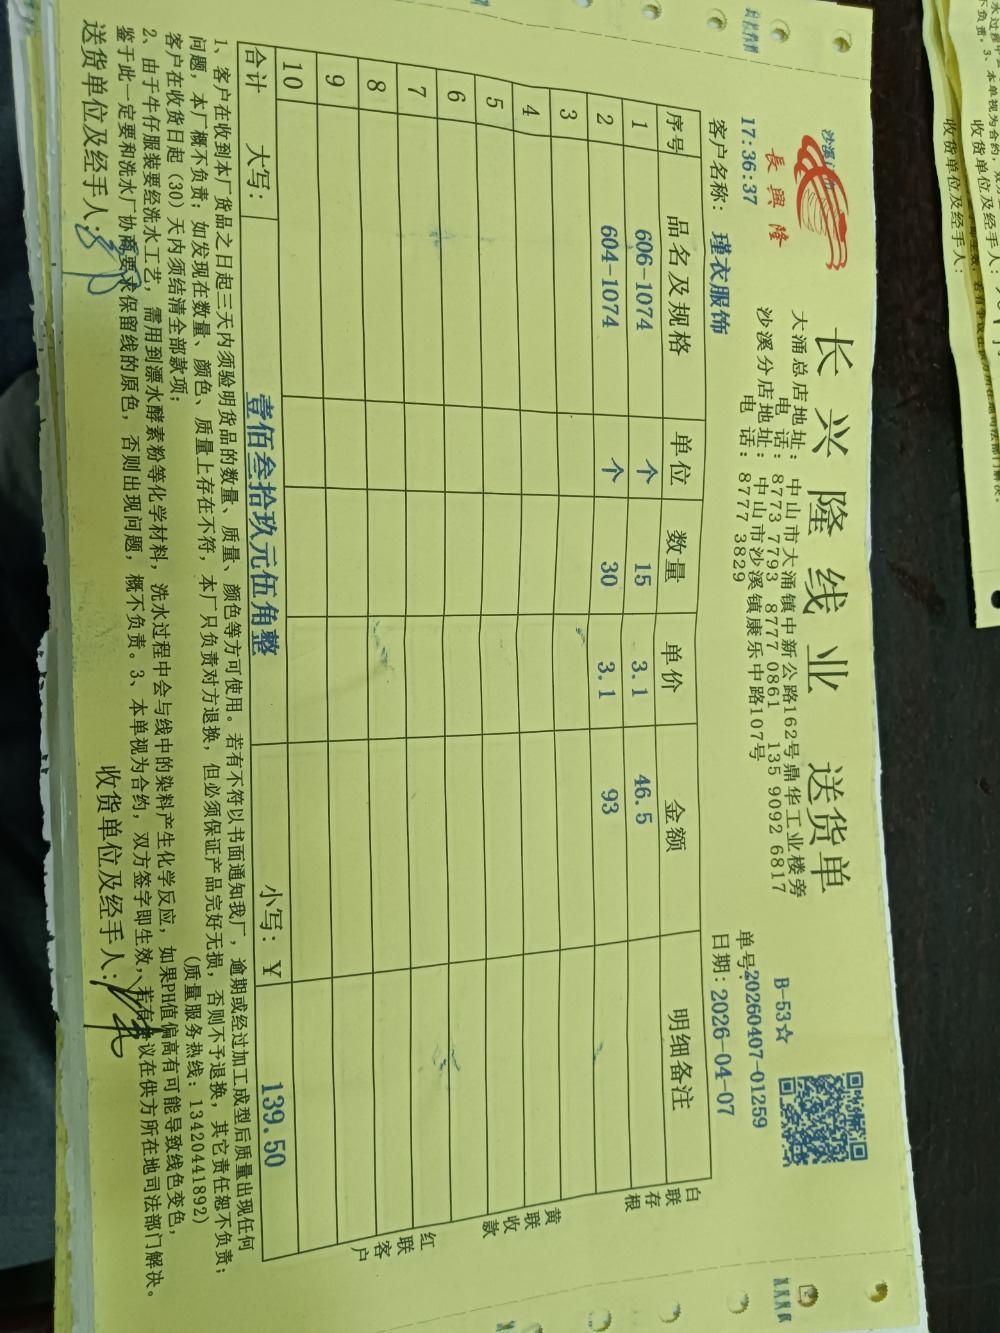 长兴隆线业 送货单
長興隆
大涌总店地址：中山市大涌镇中新公路162号鼎华工业楼旁
电 话：8773 7793 8777 0861 135 9092 6817
沙溪分店地址：中山市沙溪镇康乐中路107号
电 话：8777 3829
B-53☆
单号20260407-01259
17:36:37
客户名称：瑾衣服饰
日期：2026-04-07
序号 品名及规格 单位 数量 单价 金额 明细备注
1 606-1074 个 15 3.1 46.5
2 604-1074 个 30 3.1 93
3
4
5
6
7
8
9
10
合计 大写：壹佰叁拾玖元伍角整 小写：￥139.50
白联存根
黄联收款
红联客户
1、客户在收到本厂货品之日起三天内须验明货品的数量、质量、颜色等方可使用。若有不符以书面通知我厂，逾期或经过加工成型后质量出现任何
问题，本厂概不负责；如发现在数量、颜色、质量上存在不符，本厂只负责对方退换，但必须保证产品完好无损，否则不予退换，其它责任恕不负责；
客户在收货日起（30）天内须结清全部款项；
（质量服务热线：13420441892）
2、由于牛仔服装要经洗水工艺，需用到漂水酵素粉等化学材料，洗水过程中会与线中的染料产生化学反应，如果PH值偏高有可能导致线色变色，
鉴于此一定要和洗水厂协商要求保留线的原色，否则出现问题，概不负责。3、本单视为合约，双方签字即生效，若有争议在供方所在地司法部门解决。
送货单位及经手人：
收货单位及经手人：
收货单位及经手人：
收货单位及经手人：